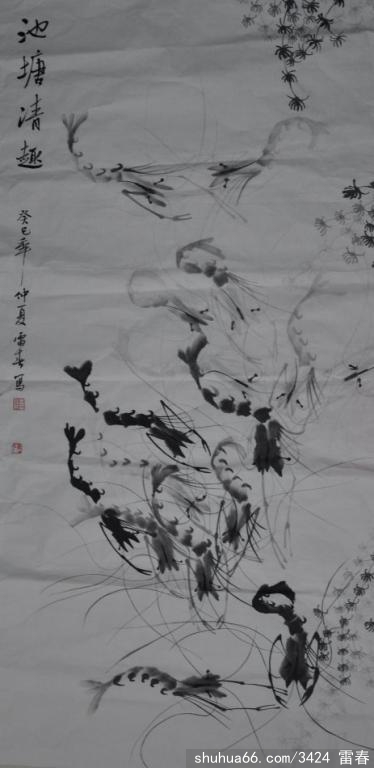 池塘清趣
癸巳年仲夏雷春写
shuhua66.com/3424 雷春